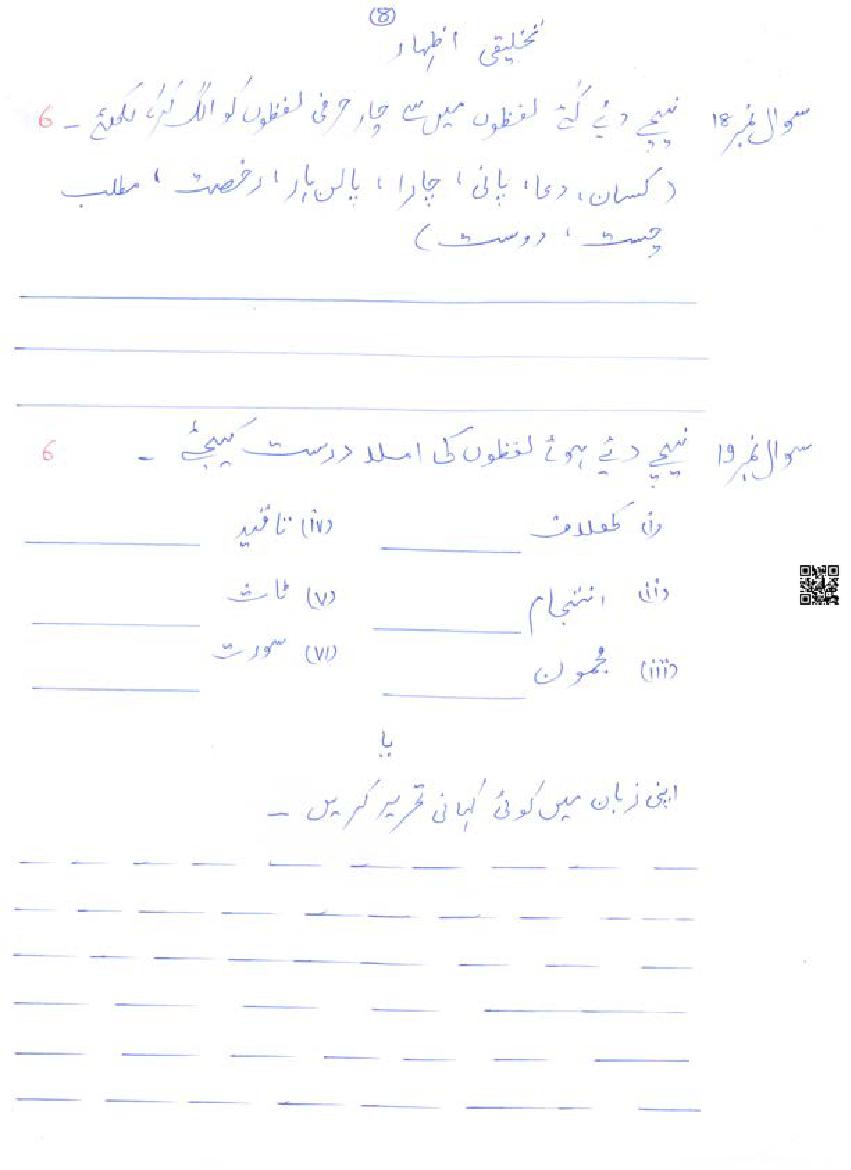 (8)
تخلیقی اظہار
سوال نمبر ۱۸ نیچے دئے گئے لفظوں میں سے چار حرفی لفظوں کو الگ کر کے لکھئے ۔ 6
(کسان، دعا، پانی، چارا، پالن ہار، رخصت، مطلب
چست، دوست)
سوال نمبر ۱۹ نیچے دئے ہوئے لفظوں کی املا درست کیجئے ۔ 6
(i) کھلاف (iv) تاقید
(ii) انتجام (v) ثاث
(iii) مجمون (vi) سورت
یا
اپنی زبان میں کوئی کہانی تحریر کریں ۔